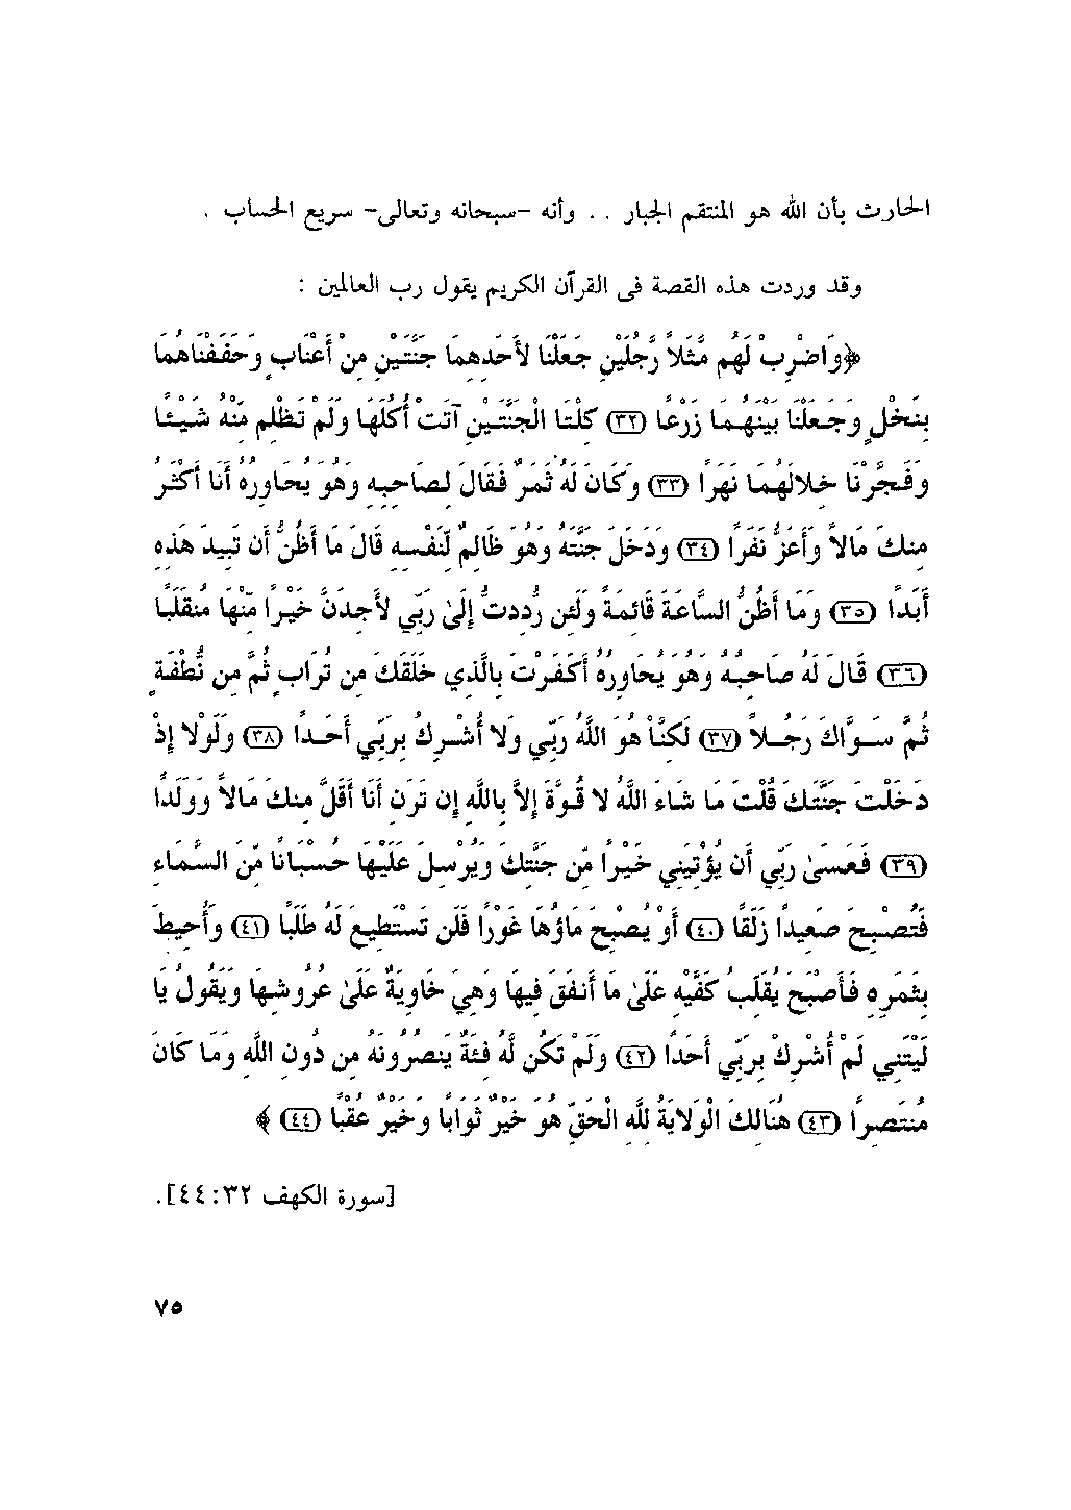 الحارث بأن الله هو المنتقم الجبار . . وأنه -سبحانه وتعالى- سريع الحساب .
وقد وردت هذه القصة فى القرآن الكريم يقول رب العالمين :
﴿وَاضْرِبْ لَهُم مَّثَلاً رَّجُلَيْنِ جَعَلْنَا لأَحَدِهِمَا جَنَّتَيْنِ مِنْ أَعْنَابٍ وَحَفَفْنَاهُمَا
بِنَخْلٍ وَجَعَلْنَا بَيْنَهُمَا زَرْعًا (٣٢) كِلْتَا الْجَنَّتَيْنِ آتَتْ أُكُلَهَا وَلَمْ تَظْلِم مِّنْهُ شَيْئًا
وَفَجَّرْنَا خِلالَهُمَا نَهَرًا (٣٣) وَكَانَ لَهُ ثَمَرٌ فَقَالَ لِصَاحِبِهِ وَهُوَ يُحَاوِرُهُ أَنَا أَكْثَرُ
مِنكَ مَالاً وَأَعَزُّ نَفَرًا (٣٤) وَدَخَلَ جَنَّتَهُ وَهُوَ ظَالِمٌ لِّنَفْسِهِ قَالَ مَا أَظُنُّ أَن تَبِيدَ هَذِهِ
أَبَدًا (٣٥) وَمَا أَظُنُّ السَّاعَةَ قَائِمَةً وَلَئِن رُّدِدتُّ إِلَىٰ رَبِّي لأَجِدَنَّ خَيْرًا مِّنْهَا مُنقَلَبًا
(٣٦) قَالَ لَهُ صَاحِبُهُ وَهُوَ يُحَاوِرُهُ أَكَفَرْتَ بِالَّذِي خَلَقَكَ مِن تُرَابٍ ثُمَّ مِن نُّطْفَةٍ
ثُمَّ سَوَّاكَ رَجُلاً (٣٧) لَكِنَّاْ هُوَ اللَّهُ رَبِّي وَلا أُشْرِكُ بِرَبِّي أَحَدًا (٣٨) وَلَوْلا إِذْ
دَخَلْتَ جَنَّتَكَ قُلْتَ مَا شَاءَ اللَّهُ لا قُوَّةَ إِلاَّ بِاللَّهِ إِن تَرَنِ أَنَا أَقَلَّ مِنكَ مَالاً وَوَلَدًا
(٣٩) فَعَسَىٰ رَبِّي أَن يُؤْتِيَنِي خَيْرًا مِّن جَنَّتِكَ وَيُرْسِلَ عَلَيْهَا حُسْبَانًا مِّنَ السَّمَاءِ
فَتُصْبِحَ صَعِيدًا زَلَقًا (٤٠) أَوْ يُصْبِحَ مَاؤُهَا غَوْرًا فَلَن تَسْتَطِيعَ لَهُ طَلَبًا (٤١) وَأُحِيطَ
بِثَمَرِهِ فَأَصْبَحَ يُقَلِّبُ كَفَّيْهِ عَلَىٰ مَا أَنفَقَ فِيهَا وَهِيَ خَاوِيَةٌ عَلَىٰ عُرُوشِهَا وَيَقُولُ يَا
لَيْتَنِي لَمْ أُشْرِكْ بِرَبِّي أَحَدًا (٤٢) وَلَمْ تَكُن لَّهُ فِئَةٌ يَنصُرُونَهُ مِن دُونِ اللَّهِ وَمَا كَانَ
مُنتَصِرًا (٤٣) هُنَالِكَ الْوَلايَةُ لِلَّهِ الْحَقِّ هُوَ خَيْرٌ ثَوَابًا وَخَيْرٌ عُقْبًا (٤٤) ﴾
[سورة الكهف ٣٢:٤٤].
٧٥